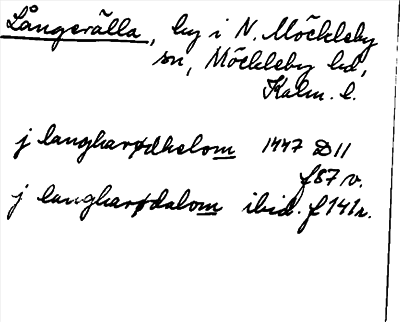 Långerälla, by i N. Möckleby
sn, Möckleby hd,
Kalm. l.
j langharødhelom 1447 D11
f87v.
j langharødalom ibid. f141r.